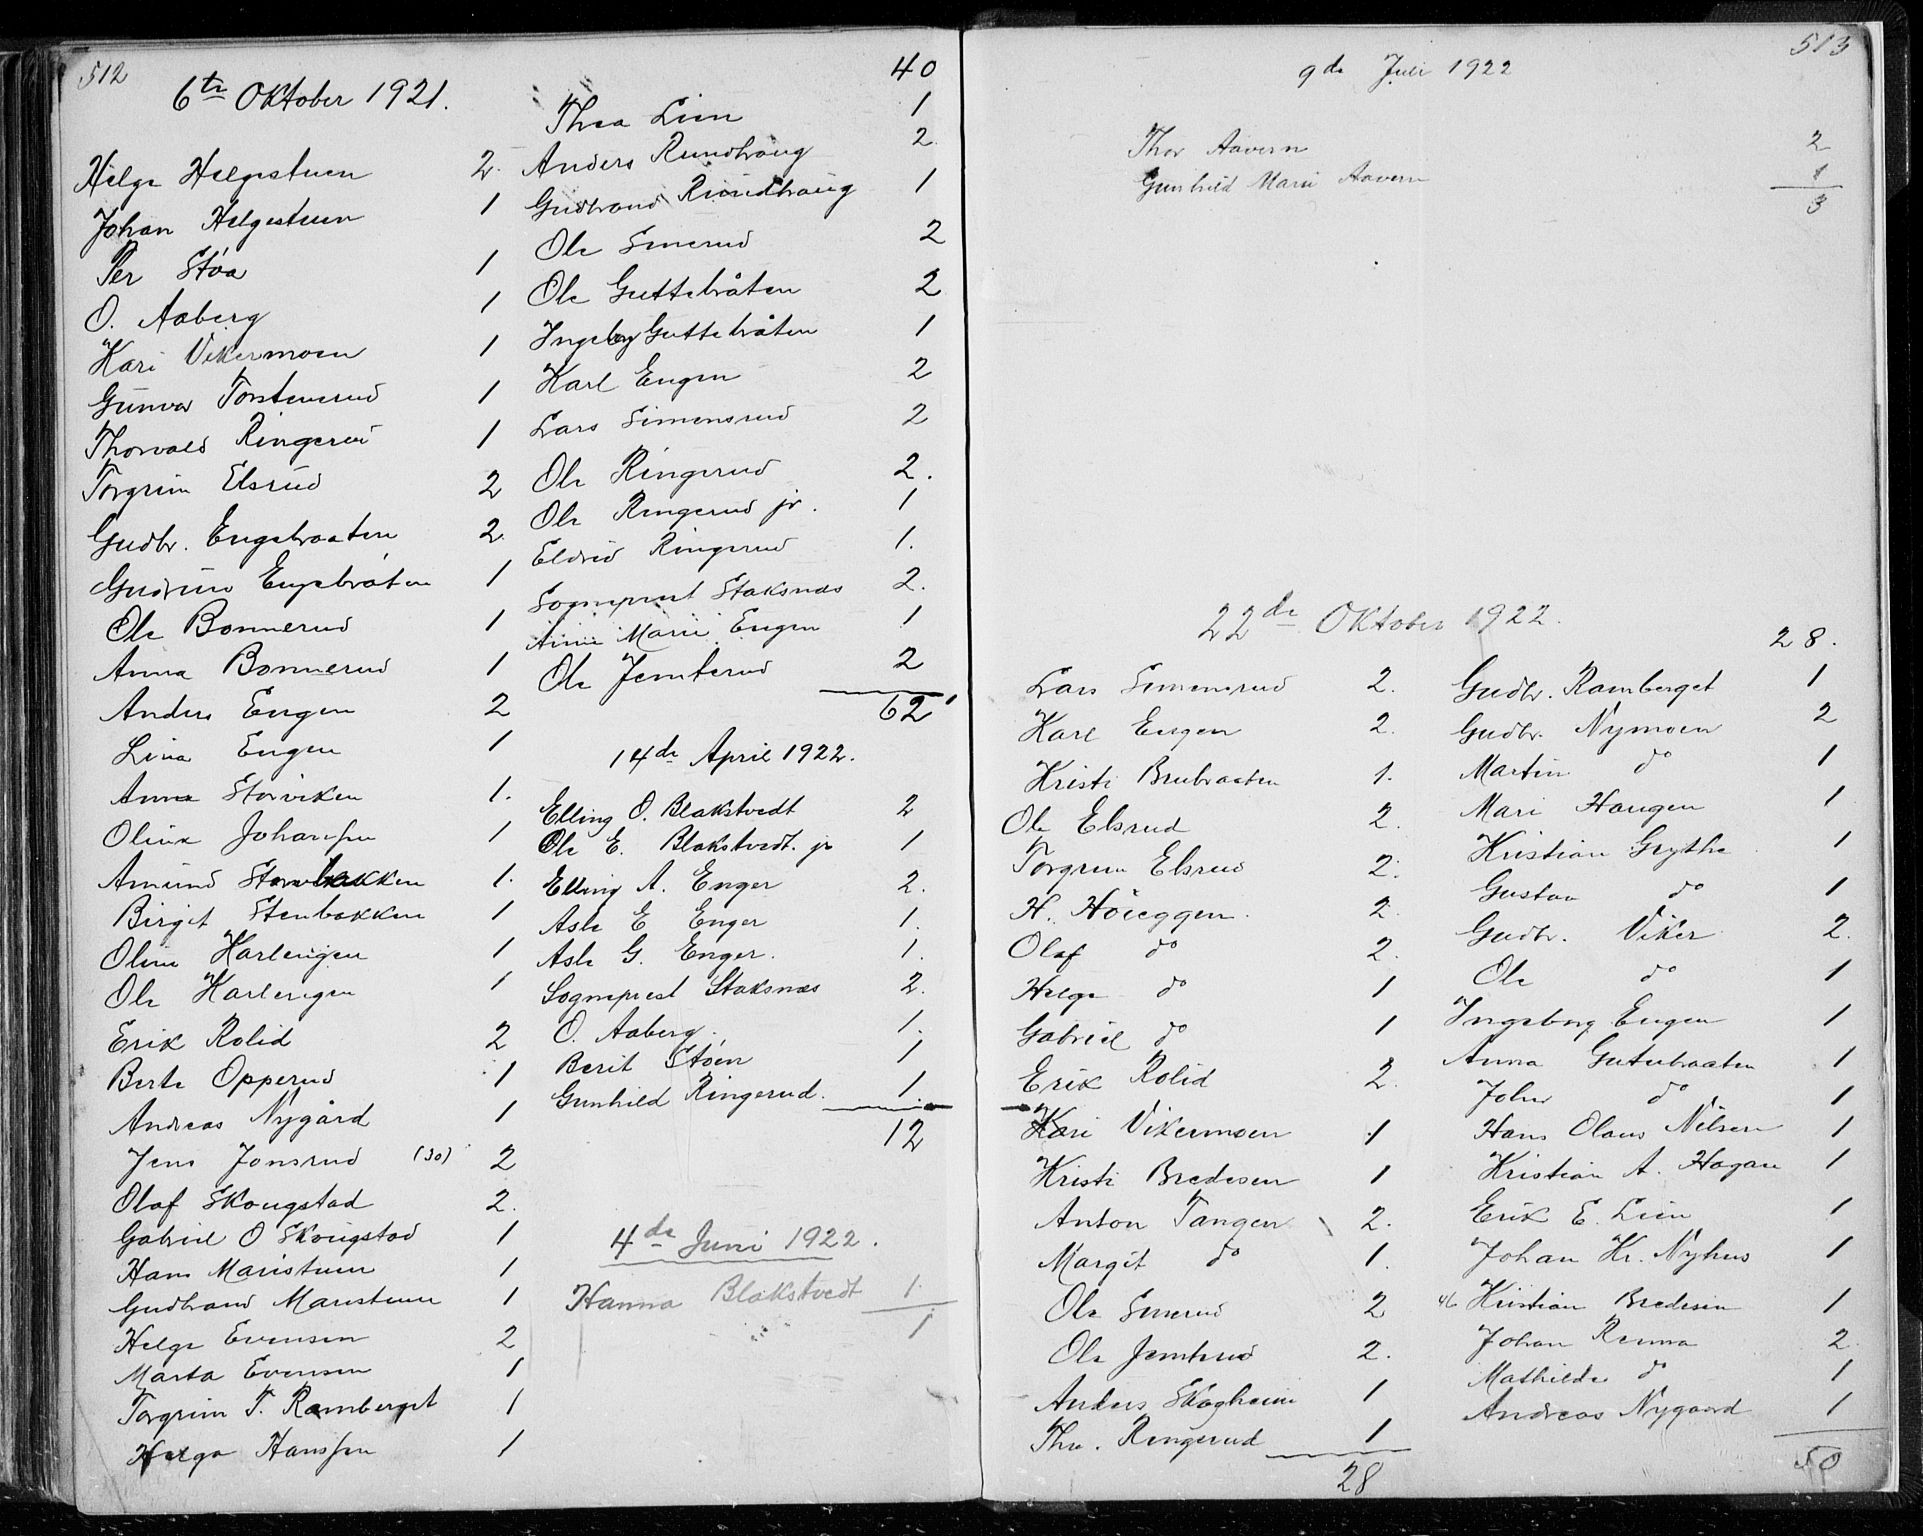 512
6te Oktober 1921.
Helge Helgestuen 2.
Johan Helgestuen 1
Per Støa 1
O. Aaberg 1
Kari Vikermoen 1
Gunvor Torstenrud 1
Thorvald Ringerud 1
Torgrim Elsrud 2
Gudbr. Engebraaten 2.
Gudrun Engebråten 1
Ole Bonnerud 1
Anna Bonnerud 1
Anders Engen 2
Lina Engen 1
Anna Storviken 1.
Oline Johansen 1
Amund Stenbakken 1.
Birgit Stenbakken 1
Oline Harlengen 1
Ole Harlengen 1
Erik Rolid 2
Berte Opperud 1
Andreas Nygård 1
Jens Jonsrud (30) 2
Olaf Skougstad 2.
Gabriel O Skougstad 1
Hans Maristuen 1
Gudbrand Maristuen 1
Helge Evensen 2
Marta Evensen 1
Torgrim T. Ramberget 1
Helga Hanssen 1
40
Thea Lien 1
Anders Rundhaug 2.
Gudbrand Rundhaug 1
Ole Smerud 2
Ole Guttebråten 2
Ingeborg Guttebråten 1
Karl Engen 2
Lars Simensrud 2
Ole Ringerud 2.
Ole Ringerud jr. 1
Eldrid Ringerud 1.
Sogneprest Staksnæs 2.
Anne Marie Engen 1
Ole Jemterud 2
62
14de April 1922.
Elling O. Blakstvedt 2
Ole E. Blakstvedt. jr 1
Elling A. Enger 2.
Asle E Enger 1.
Asle G. Enger. 1.
Sogneprest Staksnæs 2.
O. Aaberg. 1.
Berit Støen 1
Gunhild Ringerud. 1.
12
4de Juni 1922.
Hanna Blakstvedt 1.
1
513
9de Juli 1922
Thor Aavern 2
Gunhild Marie Aavern 1
3
22de Oktober 1922.
Lars Simensrud 2.
Karl Engen 2.
Kristi Brubraaten 1.
Ole Elsrud 2.
Torgrim Elsrud 2.
H. Høieggen. 2.
Olaf do 2.
Helge do 1
Gabriel do 1
Erik Rolid 2.
Kari Vikermoen 1
Kristi Bredesen 1
Anton Tangen 2.
Margit do 1.
Ole Smerud 2
Ole Jemterud 2.
Anders Skogheim 1
Thv. Ringerud 1
28
28.
Gudbr. Ramberget 1
Gudbr. Nymoen 2
Martin do 1
Mari Haugen 1
Kristian Grythe 1
Gustav do 1
Gudbr. Viker 2.
Ole do 1
Ingeborg Engen 1
Anna Gutubraaten 1
Johs do 1
Hans Olaus Nilsen 1
Kristian A. Hagan 1
Erik E. Lien 1
Johan Kr. Nyhus 1
46 Kristian Bredesen 1
Johan Renna 2.
Mathilde do 1
Andreas Nygaard 1
50